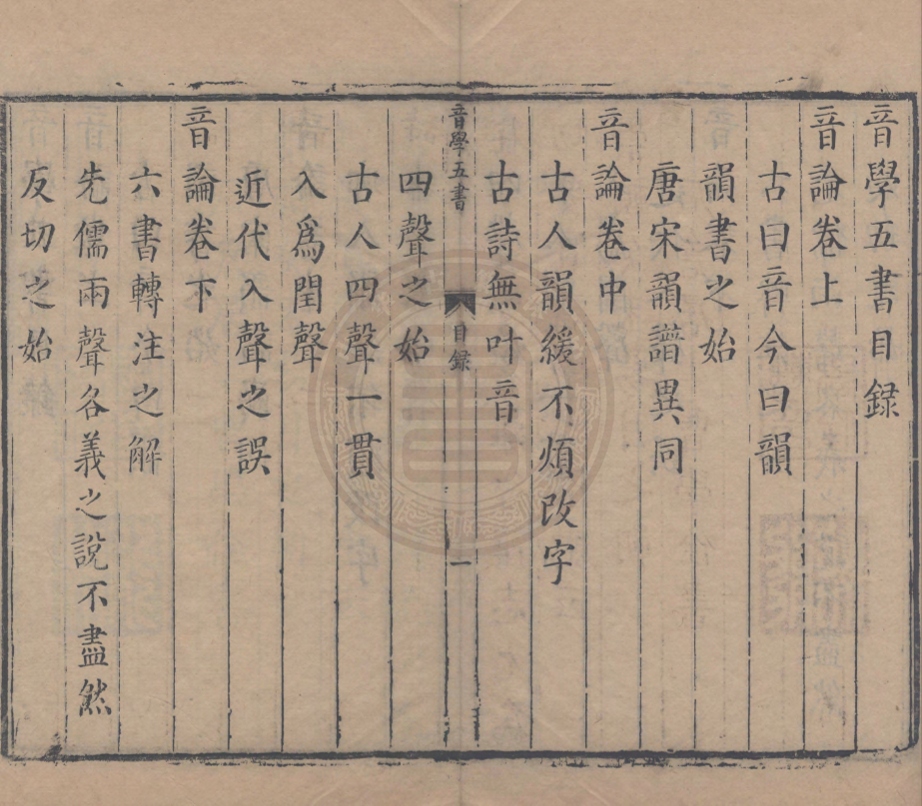 音學五書目録
音論卷上
古曰音今曰韻
韻書之始
唐宋韻譜異同
音論卷中
古人韻緩不煩改字
古詩無叶音
音學五書
目録
一
四聲之始
古人四聲一貫
入爲閏聲
近代入聲之誤
音論卷下
六書轉注之解
先儒兩聲各義之說不盡然
反切之始